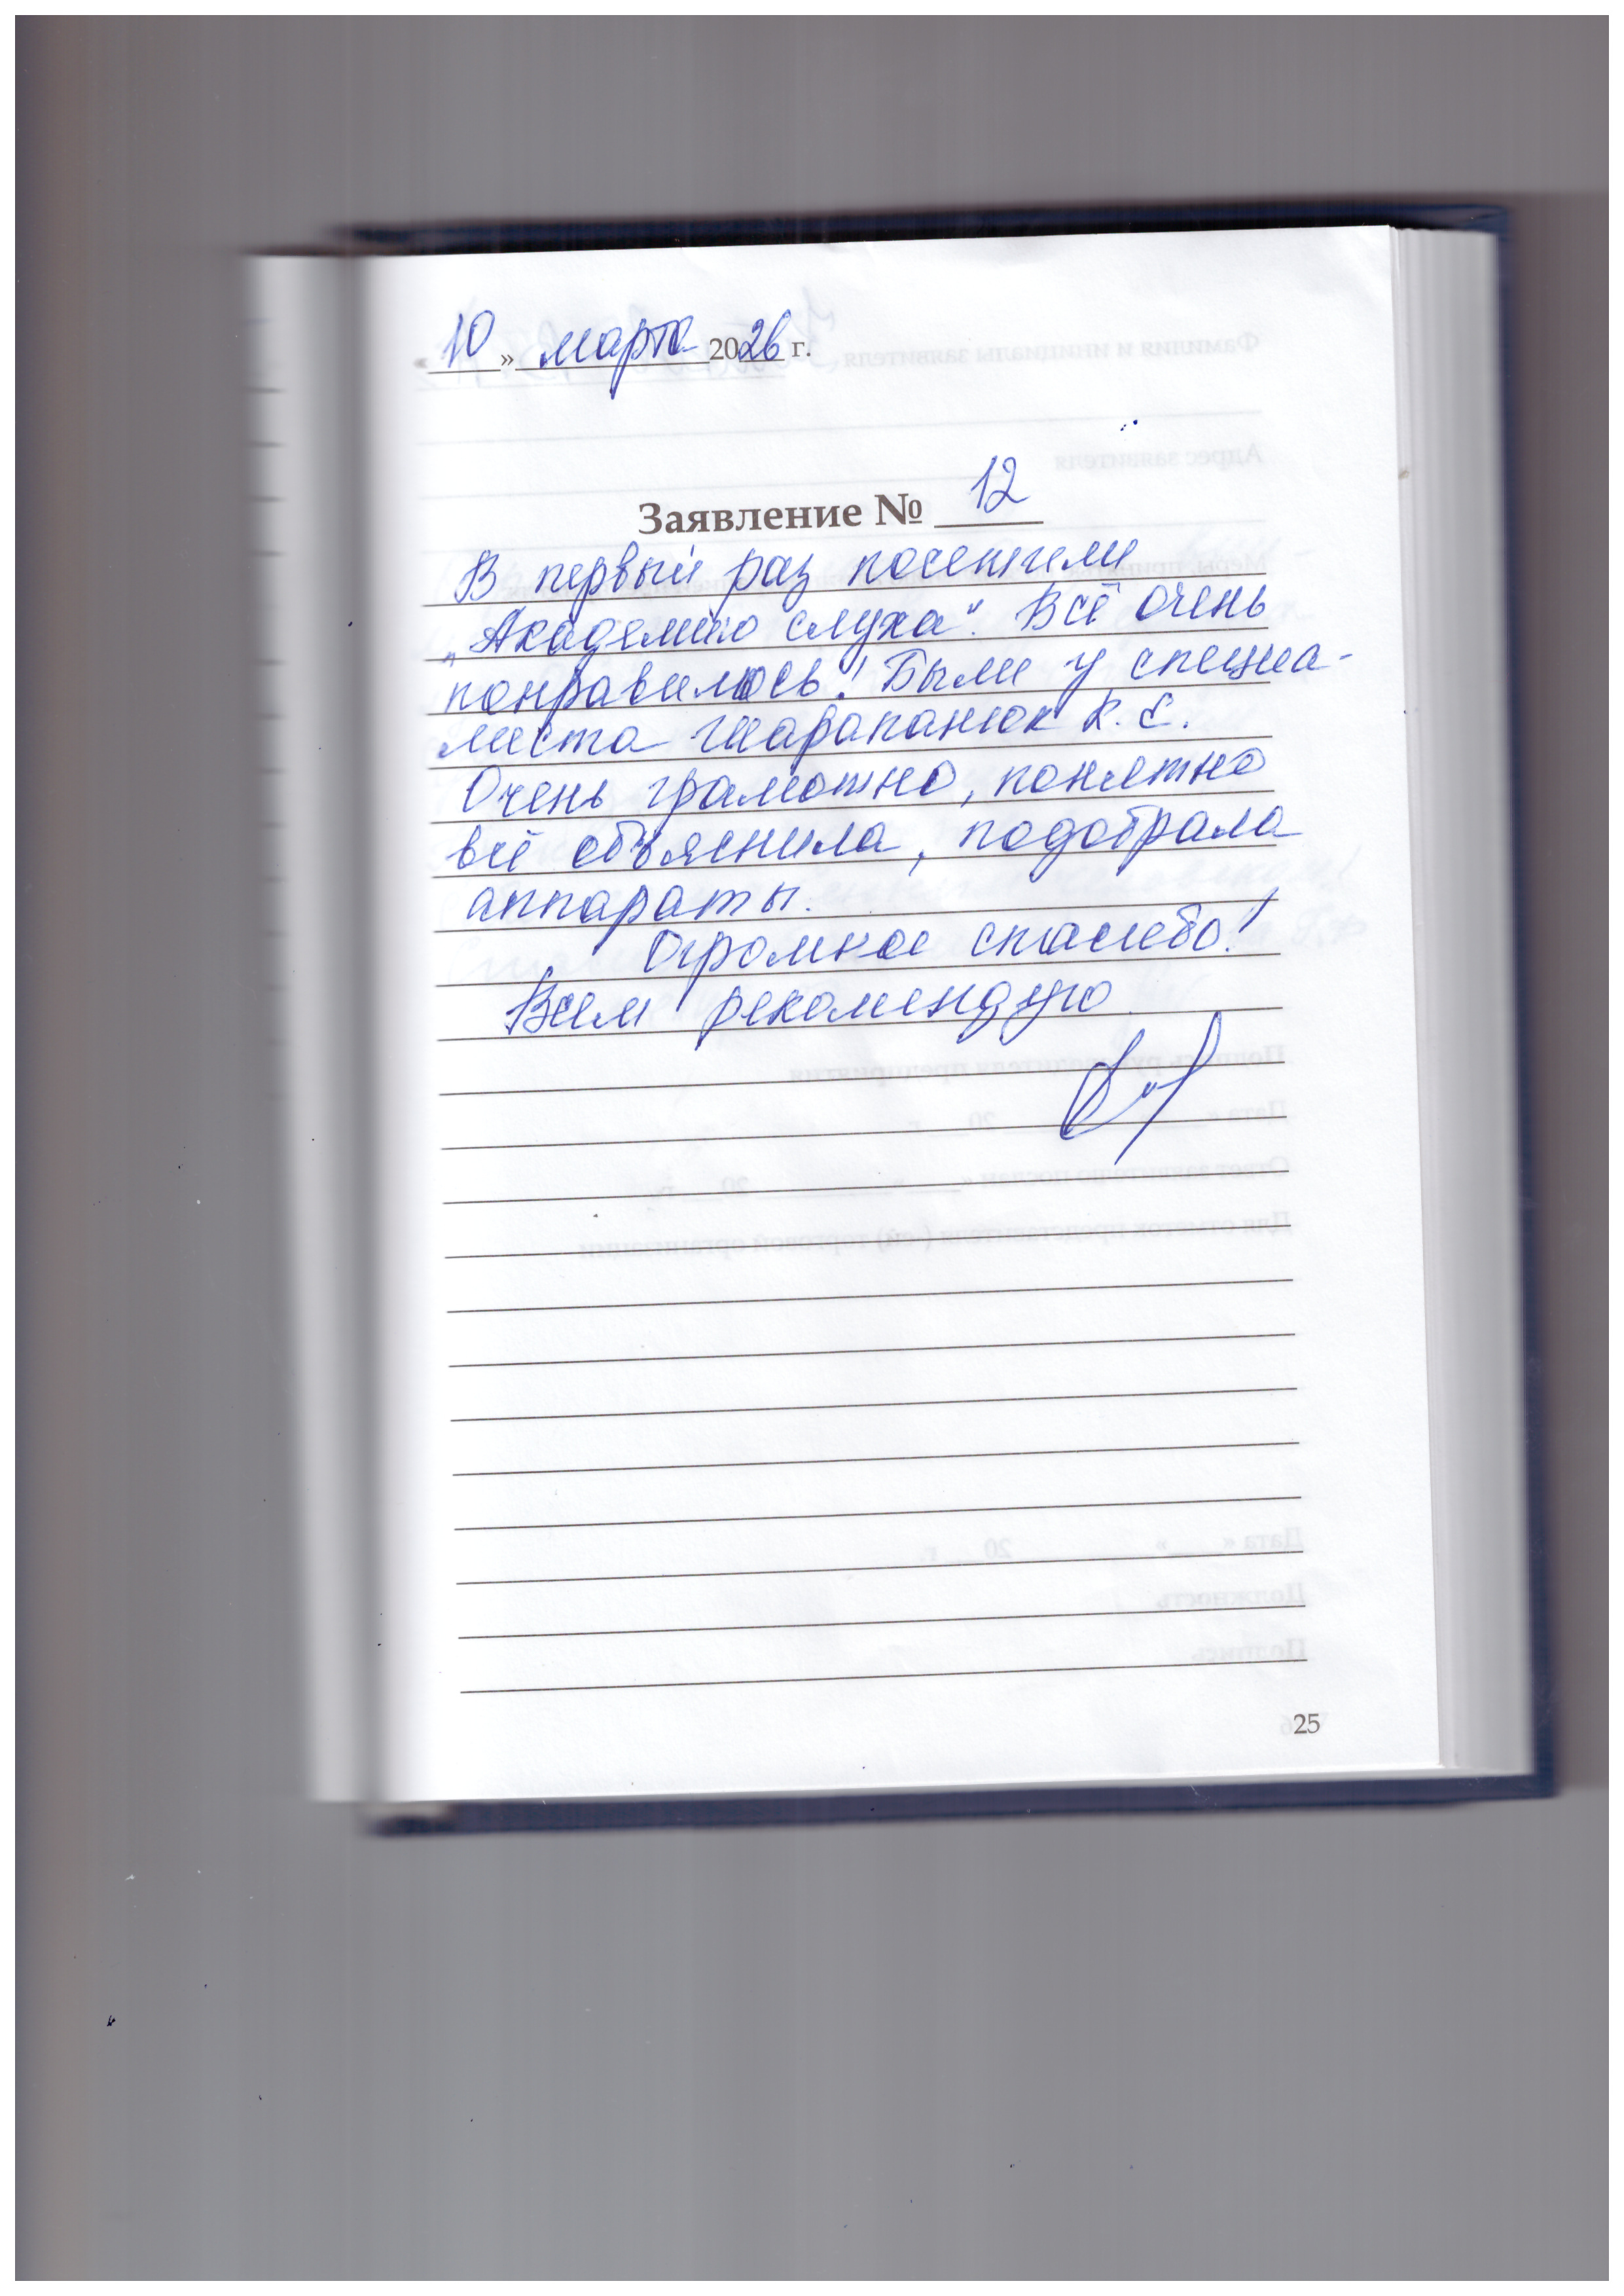 «10» марта 2026 г.
Заявление № 12
В первый раз посетили
„Академию слуха“. Всё очень
понравилось! Были у специа-
листа Шарапанюк К. Е.
Очень грамотно, понятно
всё объяснила, подобрала
аппараты.
Огромное спасибо!
Всем рекомендую
25